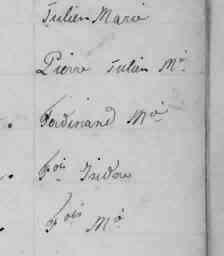 Julien Marie
Pierre Julien Mie
Ferdinand Mie
Fois Isidore
Fois Mie